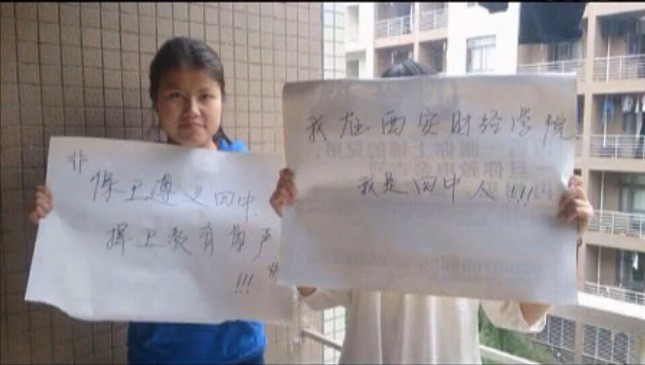 "保卫遵义四中,
捍卫教育尊严
!!!"
我在西安财经学院,
我是四中人!!!